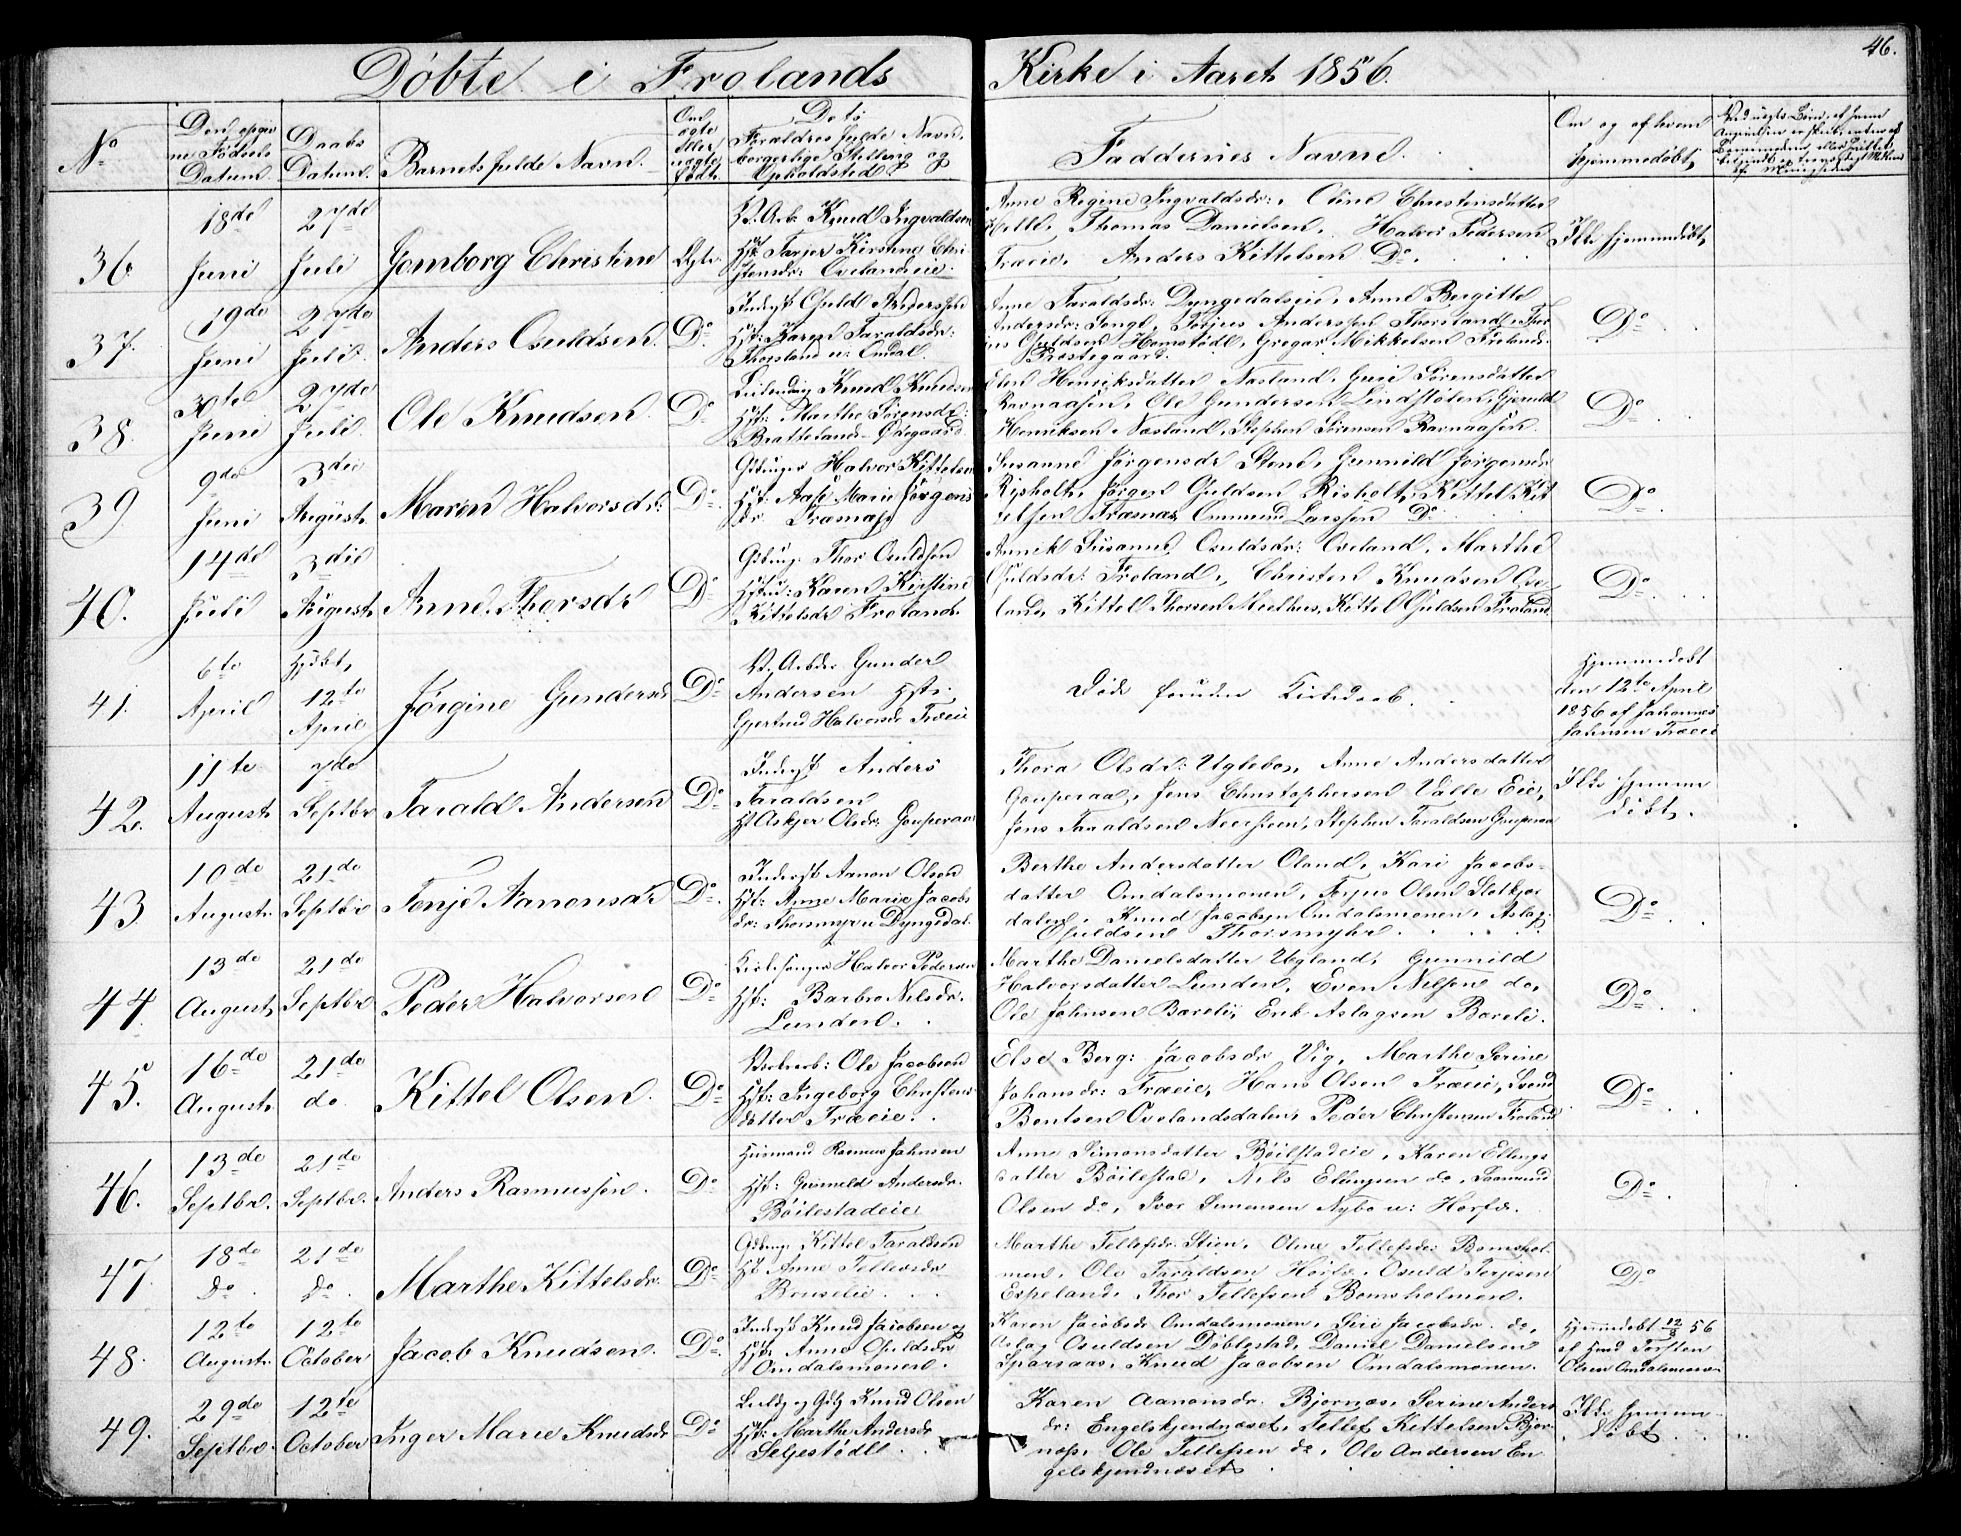 Döbte i Frolands Kirke i Aaret 1856.
46.
No
Den opgiv
ne Fødsels
Datum
Daabs
Datum.
Barnets fulde Navn.
Om
ægte
eller
uægte
født.
Do to
Forældres fulde Navn,
borgerlige Stilling og
Opholdsted
Faddernes Navne.
Om og af hvem
hjemmedøbt,
36
18de
Juni
27de
Juli
Gomborg Christine
Ægte
Knud Ingvaldsen
Hst. Tarjer Kirstine Chri
stensdr: Ovelandseie.
Anne Regine Ingvaldsdr:, Oline Christensdatter
Helle, Thomas Danielsen, Halvor Pedersen
Træeie, Anders Kittelsen Do.
Ikke hjemmedøbt,
37.
19de
Juni
27de
Juli.
Anders Osuldsen
Do
Inderst Osuld Anderssen
Hst: Karen Taraldsdr:
Thorsland u: Omdal.
Anne Taraldsdr: Dyngedalseie, Anne Bergitte
Andersdr: Songe, Terjus Anderssen Thorsland, Ter
jus Osuldsen Homstødl, Gregar Mikkelsen Frolands
Præstegaard.
Do
38.
30te
Juni
27de
Juli.
Ole Knudsen
Do
Leilending Knud Knudsen
Hst: Marthe Sørensdr:
Brattelands-Ødegaard.
Elen Henriksdatter Næsland, Guri Sørensdatter
Ravnaasen, Ole Gundersen Lindstølen, Gjeruld
Henriksen Næsland, Stephen Sørensen Ravnaasen.
Do
39
9de
Juni
3die
August
Maren Halvorsdr:
Do
Gdbruger Halvor Kittelsen
Hst: Aase Marie Jørgens
dr. Træmap
Susanne Jørgensdr Stene, Gunnild Jørgensdr
Risholt, Jørgen Osuldsen Risholt, Kittel Kit
telsen Træmas, Ommund Larssen Do
Do
40.
14de
Juli
3die
August
Anne Thorsdr
Do
Gdbrug. Thor Osuldsen
Hstru: Karen Kirstine
Kittelsdr Froland.
Annik Susanne Osuldsdr: Oveland, Marthe
Osuldsdr: Froland, Christen Knudsen Ove
land, Kittel Thorsen Mælhus, Kittel Osuldsen Froland
Do
41.
6te
April
Hjdbt,
12te
April
Jørgine Gundersdr
Do
Gunder
Andersen Hstr:
Gjertrud Halvorsdr Træeie
Død forinden Kirkedaab.
Hjemmedøbt
den 12te April
1856 af Johannes
Johnsen Træeie
42.
11te
August
7de
Septbr
Tarald Andersen
Do
Inderst Anders
Taraldsen
Ht Askjer Olsdr. Gauperaa
Thora Olsdr: Uglebos, Anne Andersdatter
Gauperaa, Jens Christophersen Valle Eie,
Jens Taraldsen Neersteen, Stephen Taraldsen Gauperaa
Ikke hjemme
døbt.
43
10de
August.
21de
Septbr
Tonje Aanonsdr
Do
Inderst Aanon Olsen
Hst: Anne Marie Jacobs
dr: Thorsmyr u Dyngedal.
Berthe Andersdatter Oland, Kari Jacobs-
datter Omdalsmonen, Terjus Olsen Slotkjer
dalen, Knud Jacobsen Omdalsmonen, Aslag
Osuldsen Thorsmyhr.
Do
44.
13de
August
21de
Septbr
Peder Halvorsen
Do
Kirkesanger Halvor Pedersen
Hst: Barbro Nilsdr.
Lunden.
Marthe Danielsdatter Ugland, Gunnild
Halvorsdatter Lunden, Even Nilsen do,
Ole Johnsen Bareli, Erik Aslagsen Bareli.
Do
45.
16de
August
21de
do.
Kittel Olsen.
Do
Ole Jacobsen
Hst: Ingeborg Christens
datter Træeie.
Else Berg: Jacobsdr Vig, Marthe Serine
Johansdr: Træeie, Hans Olsen Træeie, Svend
Bentsen Ovelandsdalen, Peder Christensen Froland
Do
46.
13de
Septbr.
21de
Septbr.
Anders Rasmussen.
Do
Huusmand Rasmus Johnsen
Hst: Gunneld Andersdr.
Bøilestadeie.
Anne Simonsdatter Bøilstadeie, Karen Ellings
datter Bøilestad, Nils Ellingsen do, Saamund
Olsen do, Ivar Simensen Nybo u: Hørfs.
Do
47.
18de
Do
21de
Do.
Marthe Kittelsdr.
Do
Gdbrug. Kittel Taraldsen
Ht Anne Tellefsdr
Bruselie.
Marthe Tellefsdr. Stien, Oline Tellefsdr Bomshol
men, Ole Taraldsen Hørfs, Osuld Terjesen
Espeland, Thor Tellefsen Bomsholmen.
Do
48.
12te
August.
12te
October
Jacob Knudsen.
Do
Inderst Knud Jacobsen og
Hst: Anne Osuldsdr
Omdalsmonen.
Karen Jacobsdr Omdalsmonen, Siri Jacobsdr. do,
Aslag Osuldsen Døblestad, Daniel Danielsen
Sparsaas, Knud Jacobsen Omdalsmonen.
Hjemmedøbt 12/8 56
af Hmd Torsten
Olsen Omdalsmonen
49.
29de
Septbr.
12te
October
Inger Marie Knudsdr
Do
Knud Olsen
Hst: Marthe Andersdr
Seljestødll
Karen Aanonsdr. Bjornæs, Serine Anders
dr: Engelskjendnæset, Tellef Kittelsen Bjor
næs, Ole Tellefsen do, Ole Andersen En
gelskjendnæset
Ikke hjemme
døbt